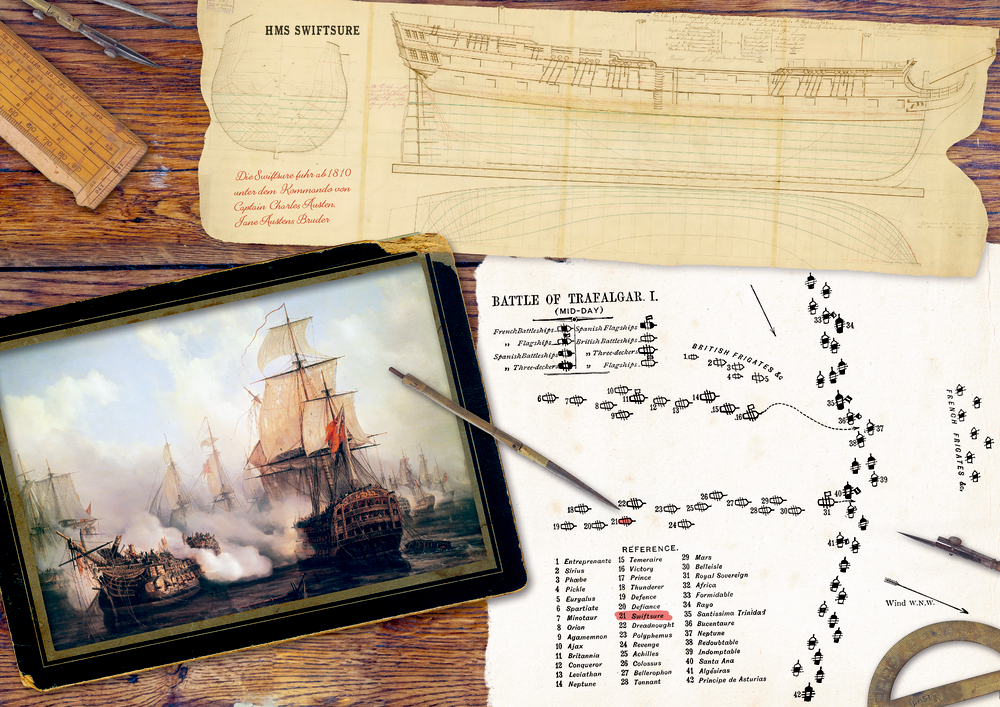 HMS SWIFTSURE
Die Swiftsure fuhr ab 1810
unter dem Kommando von
Captain Charles Austen,
Jane Austens Bruder
BATTLE OF TRAFALGAR. I.
(MID-DAY)
French Battleships
„ Flagships
Spanish Battleships
„ Three-deckers
Spanish Flagships
British Battleships
„ Three-deckers
„ Flagships
BRITISH FRIGATES &c
1
2
3
4
5
6
7
8
9
10
11
12
13
14
15
16
18
19
20
21
22
23
24
25
26
27
28
29
30
31
33
34
35
36
37
38
39
40
41
42
FRENCH FRIGATES &c.
Wind W.N.W.
REFERENCE.
1 Entreprenante
2 Sirius
3 Phœbe
4 Pickle
5 Euryalus
6 Spartiate
7 Minotaur
8 Orion
9 Agamemnon
10 Ajax
11 Britannia
12 Conqueror
13 Leviathan
14 Neptune
15 Temeraire
16 Victory
17 Prince
18 Thunderer
19 Defence
20 Defiance
21 Swiftsure
22 Dreadnought
23 Polyphemus
24 Revenge
25 Achilles
26 Colossus
27 Bellerophon
28 Tonnant
29 Mars
30 Belleisle
31 Royal Sovereign
32 Africa
33 Formidable
34 Rayo
35 Santissima Trinidad
36 Bucentaure
37 Neptune
38 Redoubtable
39 Indomptable
40 Santa Ana
41 Algésiras
42 Principe de Asturias